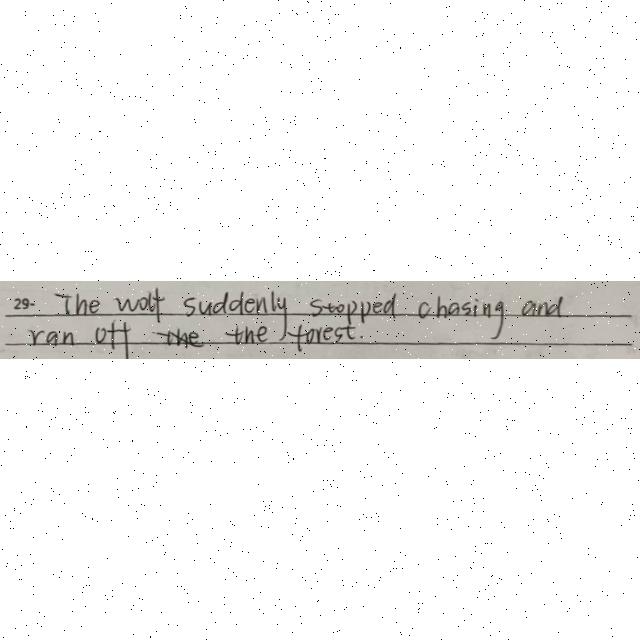 29- The wolf suddenly stopped chasing and
ran off the the forest.